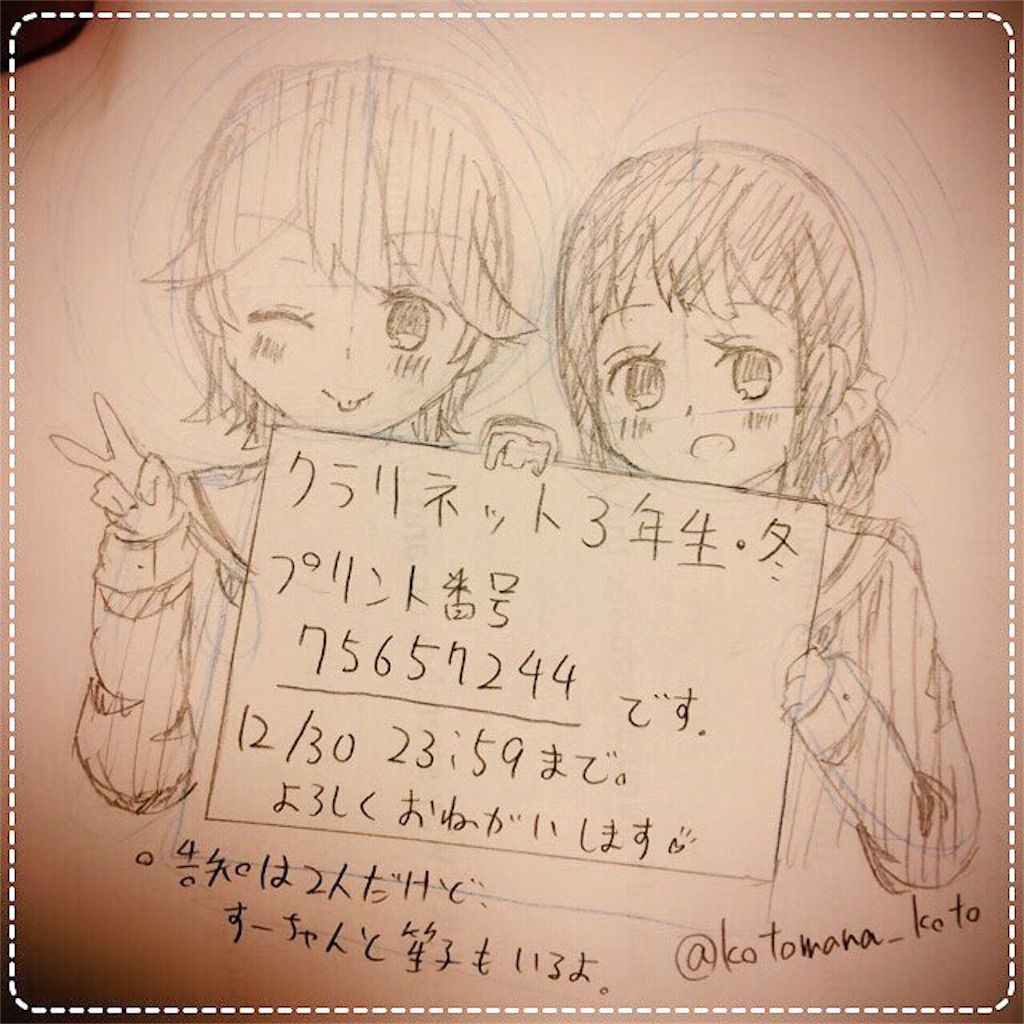 クラリネット3年生・冬
プリント番号
75657244
です。
12/30 23:59まで。
よろしくおねがいします
。告知は2人だけど、
すーちゃんと笙子もいるよ。
@kotomana_koto